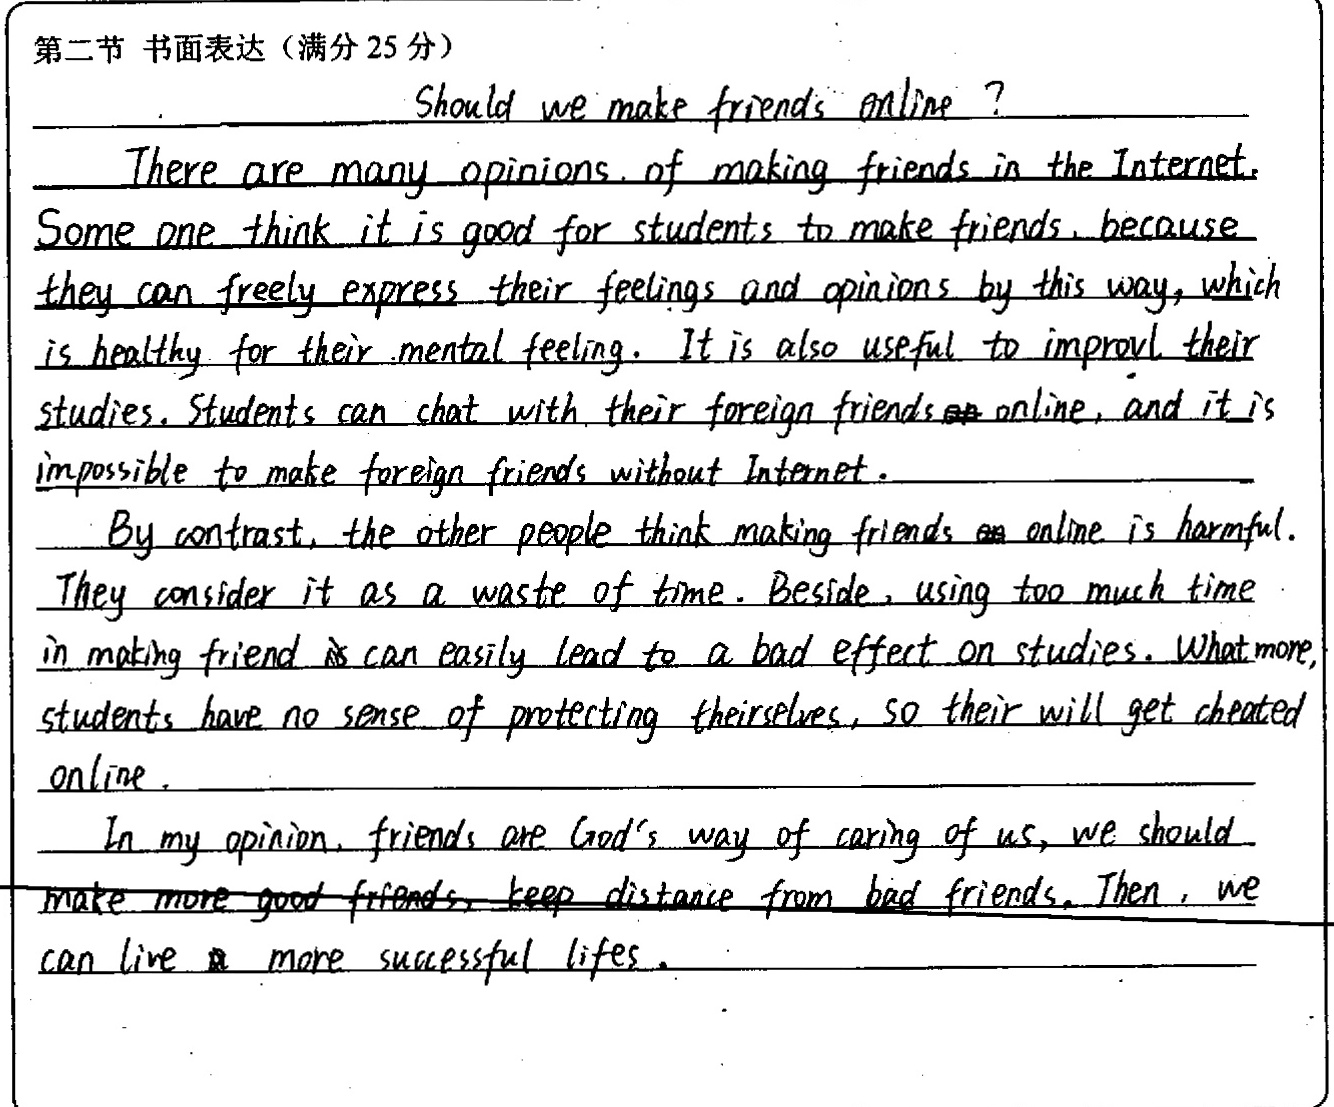 第二节 书面表达（满分 25 分）
Should we make friends online ?
There are many opinions of making friends in the Internet.
Some one think it is good for students to make friends, because
they can freely express their feelings and opinions by this way, which
is healthy for their mental feeling. It is also useful to improvl their
studies. Students can chat with their foreign friends online, and it is
impossible to make foreign friends without Internet.
By contrast, the other people think making friends online is harmful.
They consider it as a waste of time. Beside, using too much time
in making friend can easily lead to a bad effect on studies. What more,
students have no sense of protecting theirselves, so their will get cheated
online.
In my opinion, friends are God's way of caring of us, we should
make more good friends, keep distance from bad friends. Then, we
can live more successful lifes.